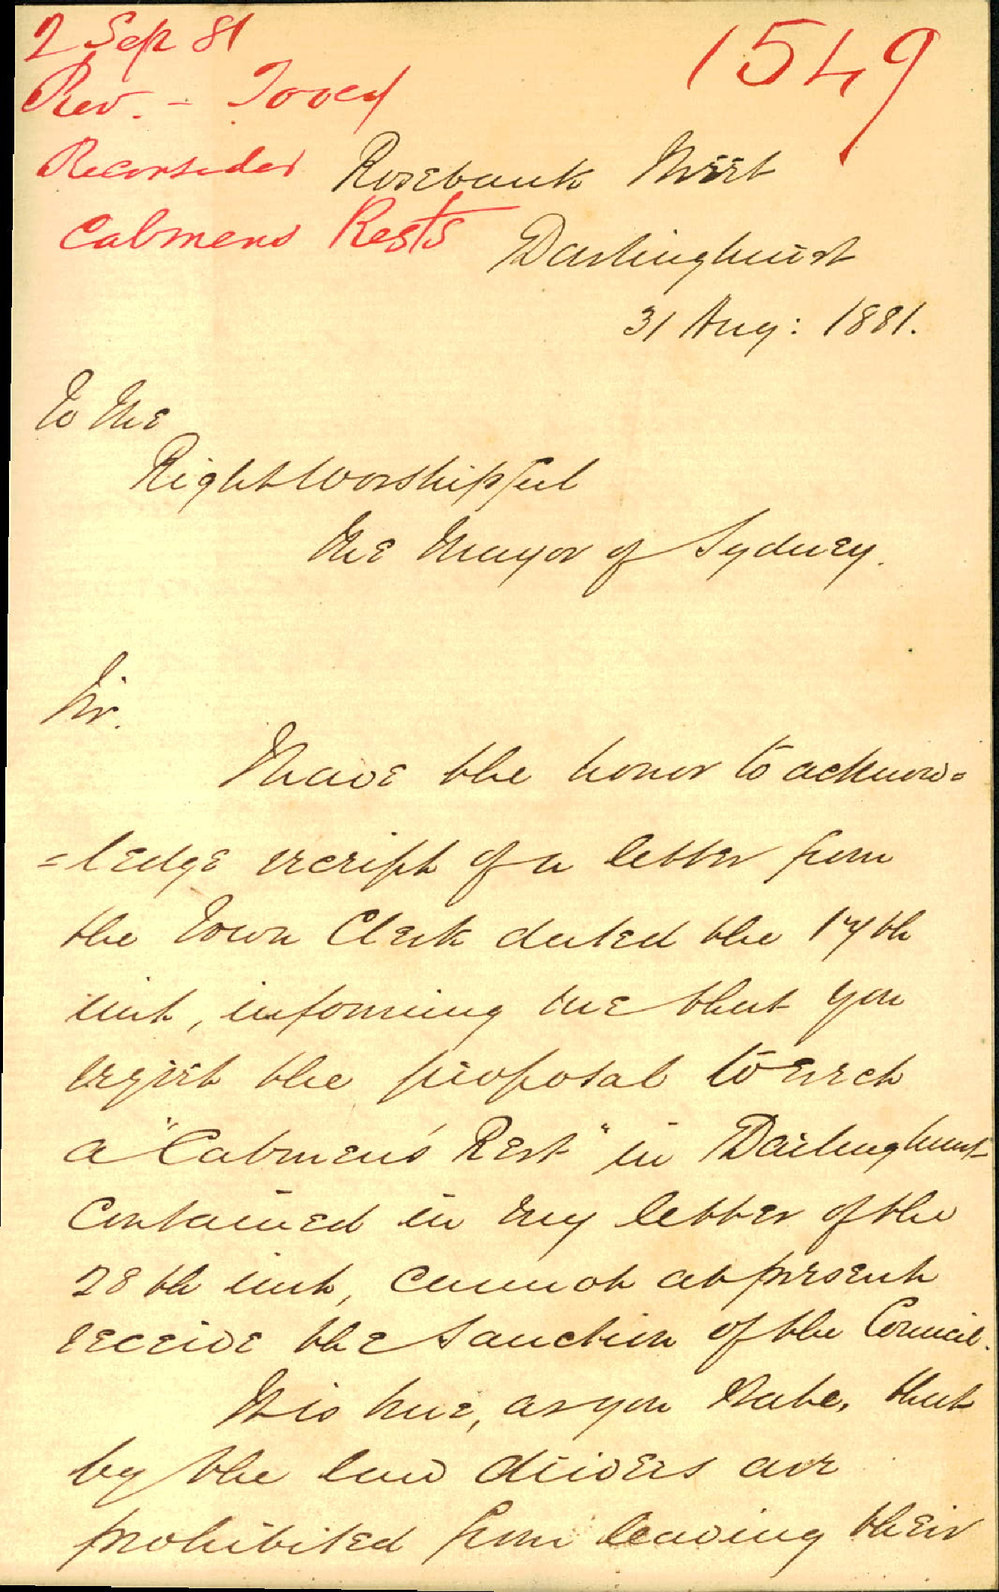 2 Sep 81
1549
Rev. - Tovey
Reconsider
Cabmens Rests
Rosebank Street
Darlinghurst
31 Aug: 1881.
To the
Right Worshipful
the Mayor of Sydney.
Sir.
I have the honor to acknow=
=ledge receipt of a letter from
the Town Clerk dated the 17th
inst, informing me that you
regret the proposal to erect
a "Cabmen's Rest" in Darlinghurst
contained in my letter of the
28th inst, cannot at present
receive the sanction of the Council.
It is true, as you state, that
by the law drivers are
prohibited from leaving their